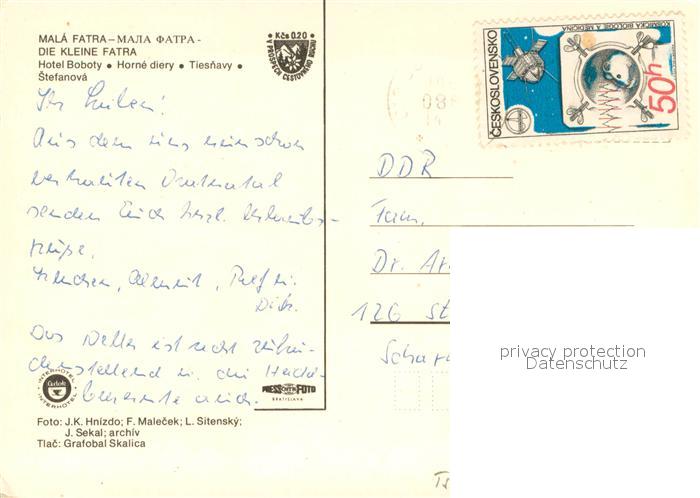 MALÁ FATRA – МАЛА ФАТРА -
DIE KLEINE FATRA
Hotel Boboty • Horné diery • Tiesňavy •
Štefanová
Kčs 0,20
V PROSPECH CESTOVNÉHO RUCHU
Ihr Lieben!
Aus dem uns nun schon
vertrauten Vrátnatal
senden Euch herzl. Urlaubs-
grüße,
Das Wetter ist recht zufrie-
denstellend u. die
auch.
INTERHOTEL
INTERHOTEL
PRESSFOTO
BRATISLAVA
Foto: J.K. Hnízdo; F. Maleček; L. Sitenský;
J. Sekal; archív
Tlač: Grafobal Skalica
ČESKOSLOVENSKO
KOSMICKÁ BIOLOGIE A MEDICÍNA
50h
DDR
Fam.
Dr. Ar
126 St
privacy protection
Datenschutz